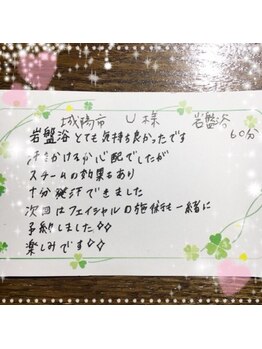 城陽市 U様 岩盤浴 60分
岩盤浴とても気持ち良かったです
汗をかけるか心配でしたが
スチームの効果もあり
十分発汗できました
次回はフェイシャルの施術も一緒に
予約しました◇◇
楽しみです◇◇